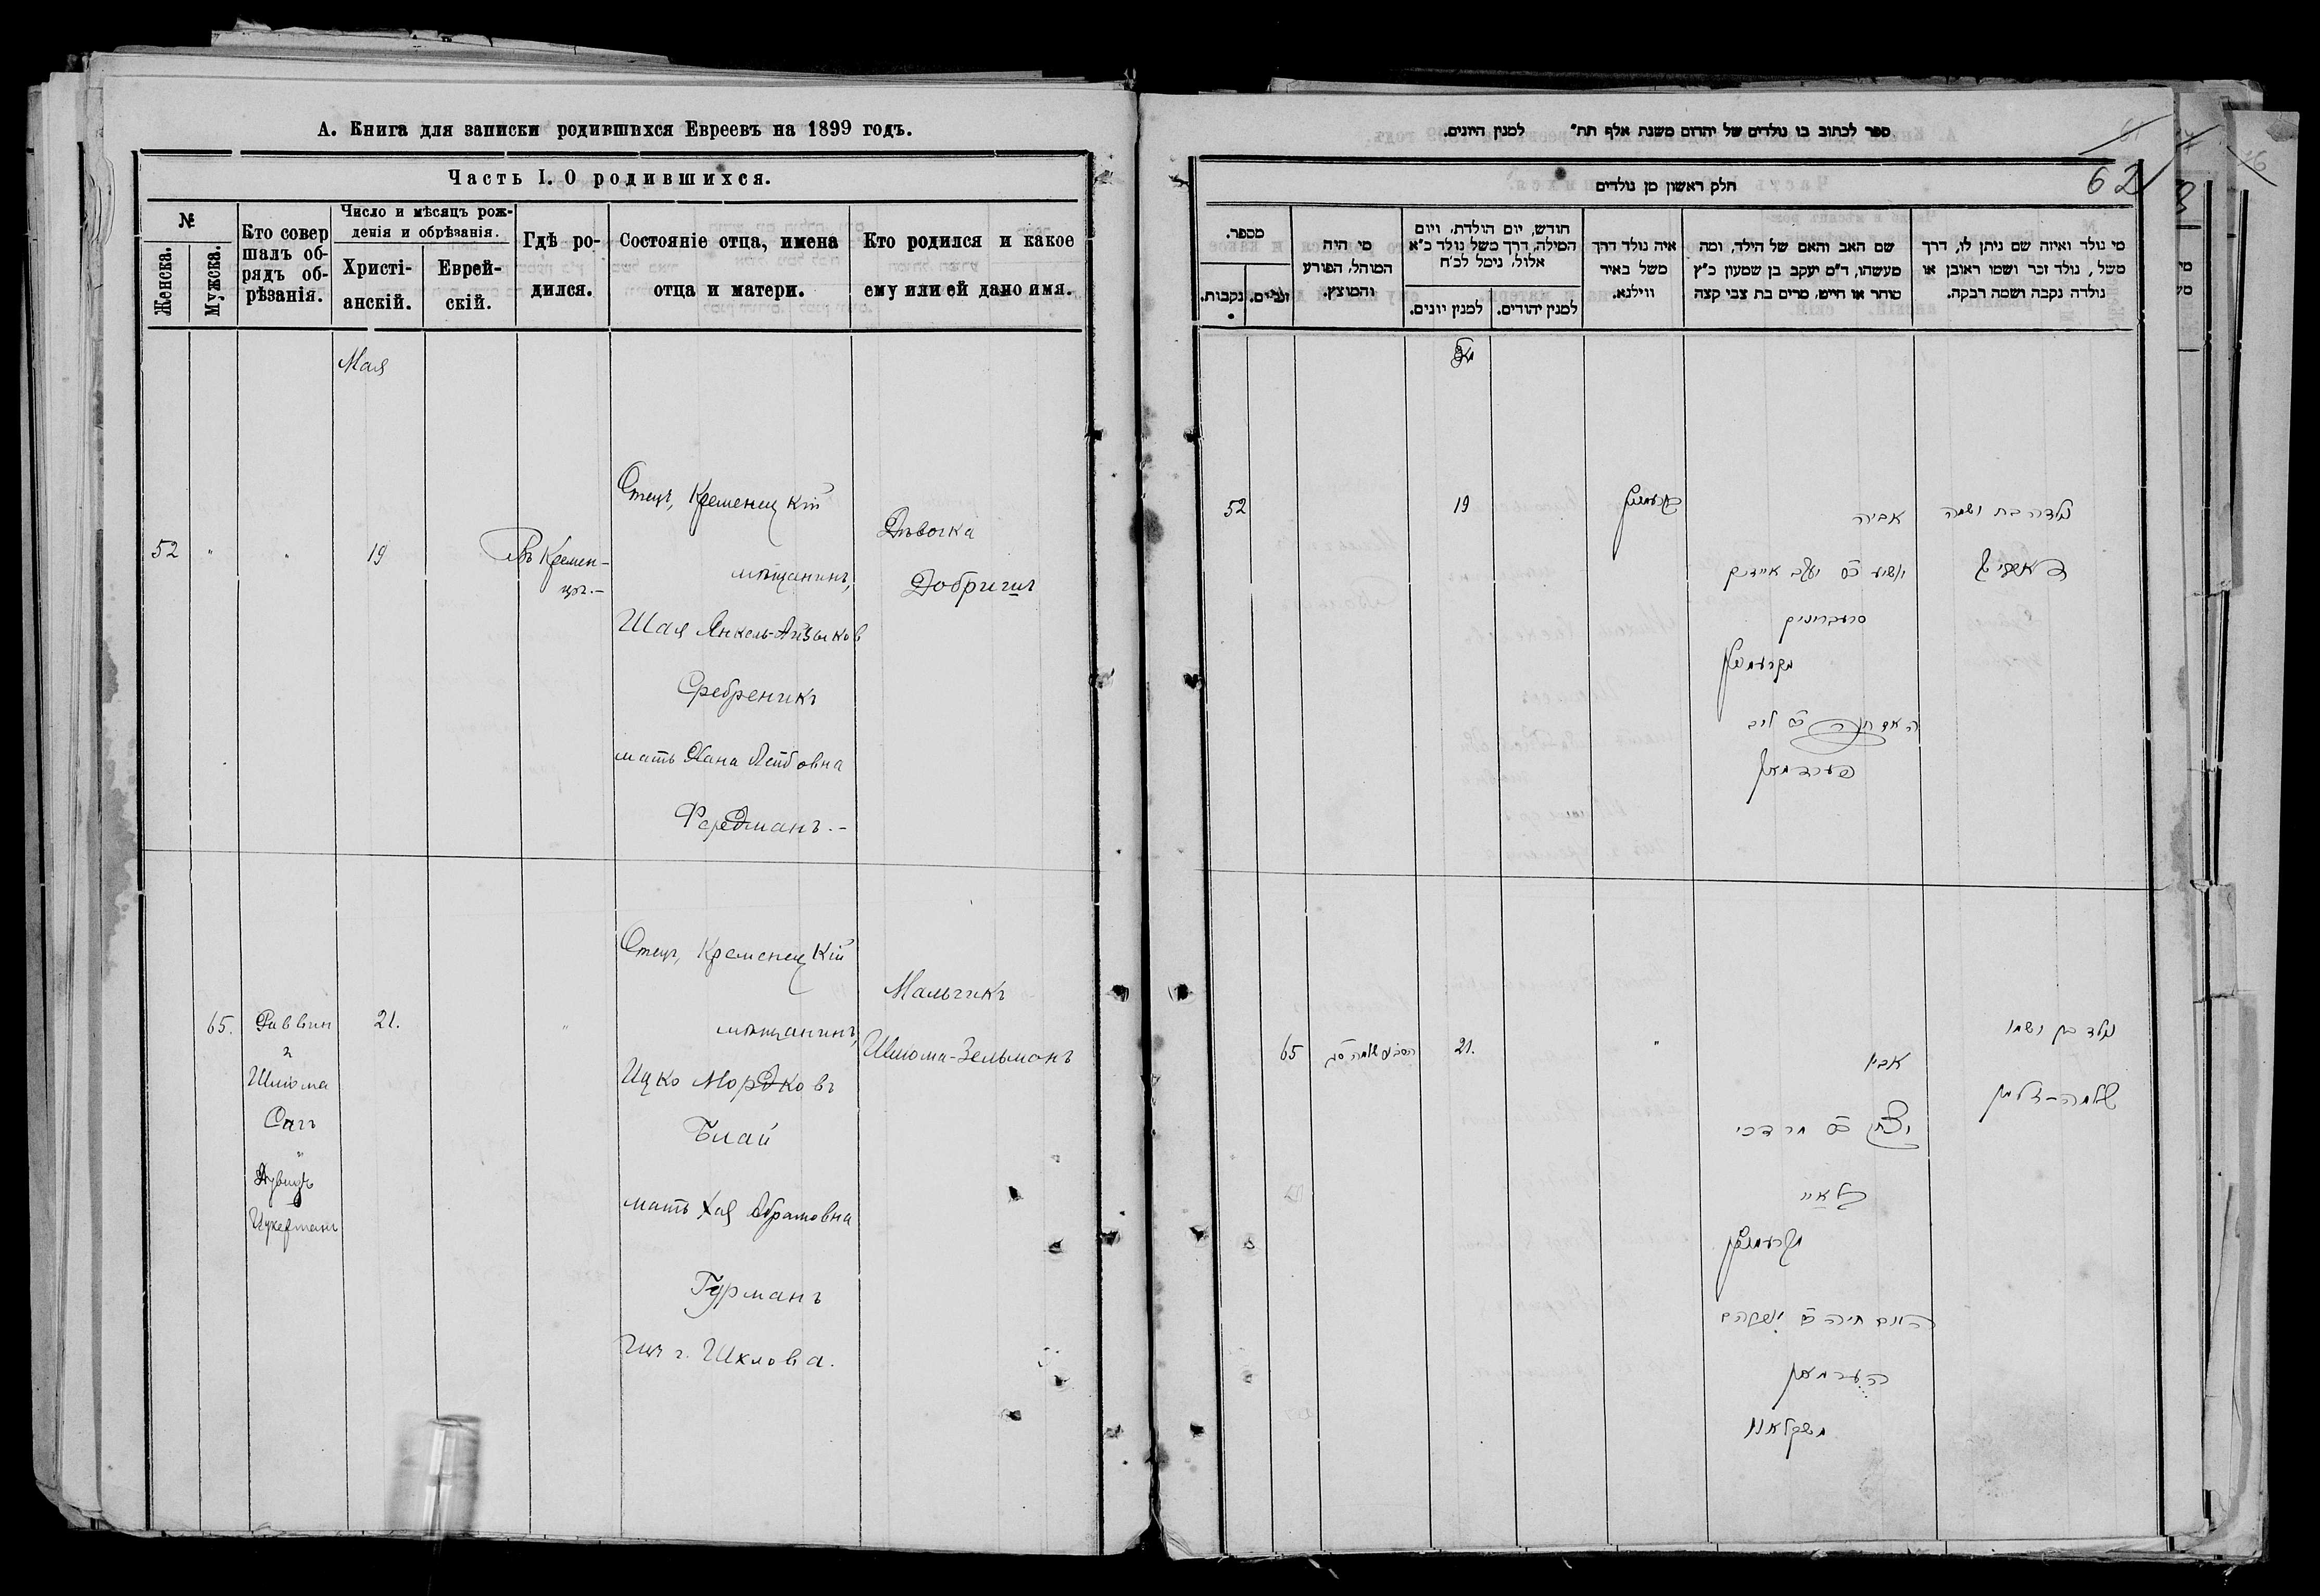 А. Книга для записки родившихся Евреевъ на 1899 годъ.
Часть I. О родившихся.
№
Женска.
Мужска.
Кто совершалъ об-
рядъ об-
рѣзанія.
Число и мѣсяцъ рож-
денія и обрѣзанія.
Христі-
анскій.
Еврей-
скій.
Гдѣ ро-
дился.
Состояніе отца, имена
отца и матери.
Кто родился и какое
ему или ей дано имя.
Мая
52 " " 19
Въ Кремен-
цѣ.-
Отецъ, Кременецкій
мѣщанинъ,
Шая Янкель-Айзыков
Сребреникъ
мать Хана Лейбовна
Фердманъ.-
Дѣвочка
65. 21. "
Раввин
и
Шлома
Дувидъ
Цукерманъ
Отецъ, Кременецкій
мѣщанинъ,
Ицко Мордковъ
Блай
мать Хая Абрамовна
Гурманъ
изъ г. Шклова.
Мальчикъ
Шлома-Зельманъ
ספר לכתוב בו נולדים של יהדום משנת אלף תת" למנין היונים.
62
חלק ראשון מן נולדים
מספר.
נקבות.
זכרים.
מי היה
המוהל, הפורע
והמוצץ.
חודש, יום הולדת, ויום
המילה, דרך משל נולד כ"א
אלול, נימל לכ"ח
למנין יונים.
למנין יהודים.
איה נולד דרך
משל באיר
ווילנא.
שם האב והאם של הילד, ומה
מעשהו, ד"מ יעקב בן שמעון כ"ץ
סוחר או חייט, מרים בת צבי קצה
מי נולד ואיזה שם ניתן לו, דרך
משל, נולד זכר ושמו ראובן או
נולדה נקבה ושמה רבקה.
52
19
קרעמניץ
אביה
סרעברניק
מקרעמניץ
פערדמאן
נולדה בת ושמה
65
21.
"
אביו
יצחק בר מרדכי
בלאיי
מקרעמניץ
הערמאן
משקלאוו
נולד בן ושמו
שלמה-זלמן